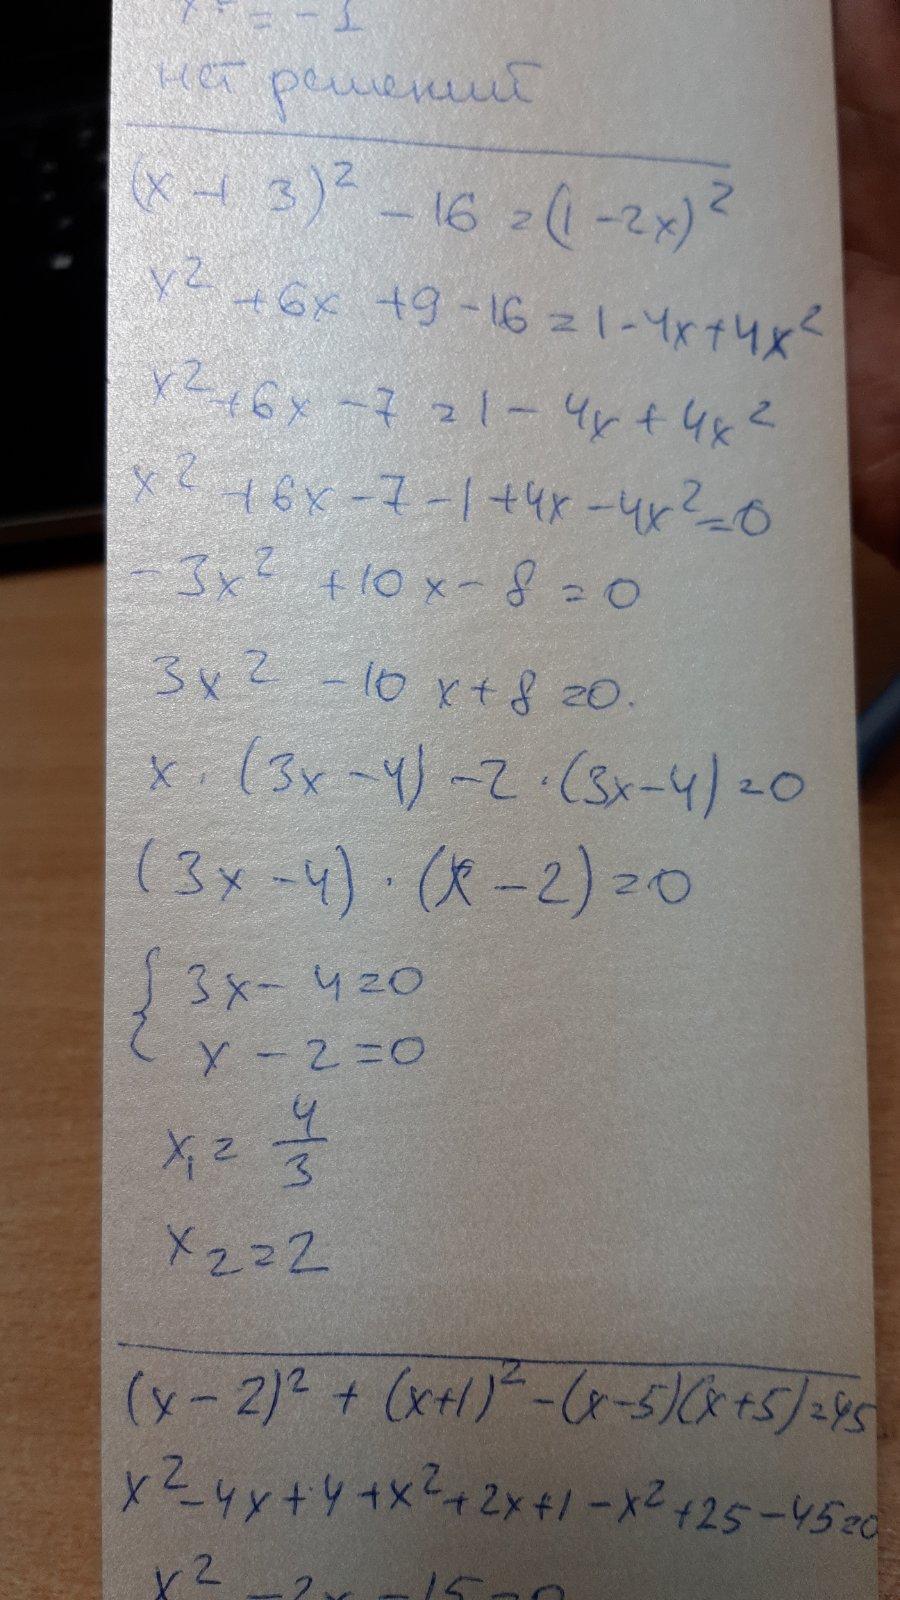 x² = -1
нет решений
(x + 3)² - 16 = (1 - 2x)²
x² + 6x + 9 - 16 = 1 - 4x + 4x²
x² + 6x - 7 = 1 - 4x + 4x²
x² + 6x - 7 - 1 + 4x - 4x² = 0
-3x² + 10x - 8 = 0
3x² - 10x + 8 = 0.
x · (3x - 4) - 2 · (3x - 4) = 0
(3x - 4) · (x - 2) = 0
{ 3x - 4 = 0
x - 2 = 0
x₁ = 4/3
x₂ = 2
(x - 2)² + (x+1)² - (x-5)(x+5) = 45
x² - 4x + 4 + x² + 2x + 1 - x² + 25 - 45 = 0
x² - 2x - 15 = 0